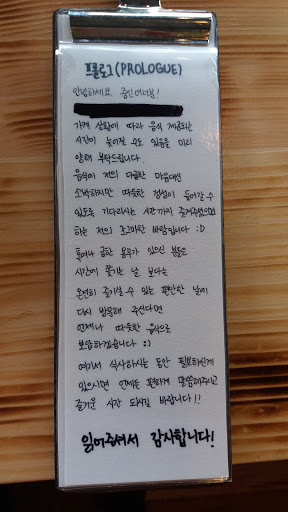 프롤로그(PROLOGUE)
안녕하세요 주인여러분!
가게 상황에 따라 음식 제공되는
시간이 늦어질 수도 있음을 미리
양해 부탁드립니다.
음식에 저의 다급한 마음대신
소박하지만 따뜻한 정성이 들어갈 수
있도록 기다리시는 시간까지 즐겨주셨으면
하는 저의 조그마한 바람입니다 :D
혹여나 급한 용무가 있으신 분들은
시간에 쫓기는 날 보다는
온전히 즐기실 수 있는 편안한 날에
다시 방문해 주신다면
언제나 따뜻한 음식으로
보답하겠습니다 :)
여기서 식사하시는 동안 필요하신게
있으시면 언제든 편하게 말씀해주시고
즐거운 시간 되시길 바랍니다!!
읽어주셔서 감사합니다!